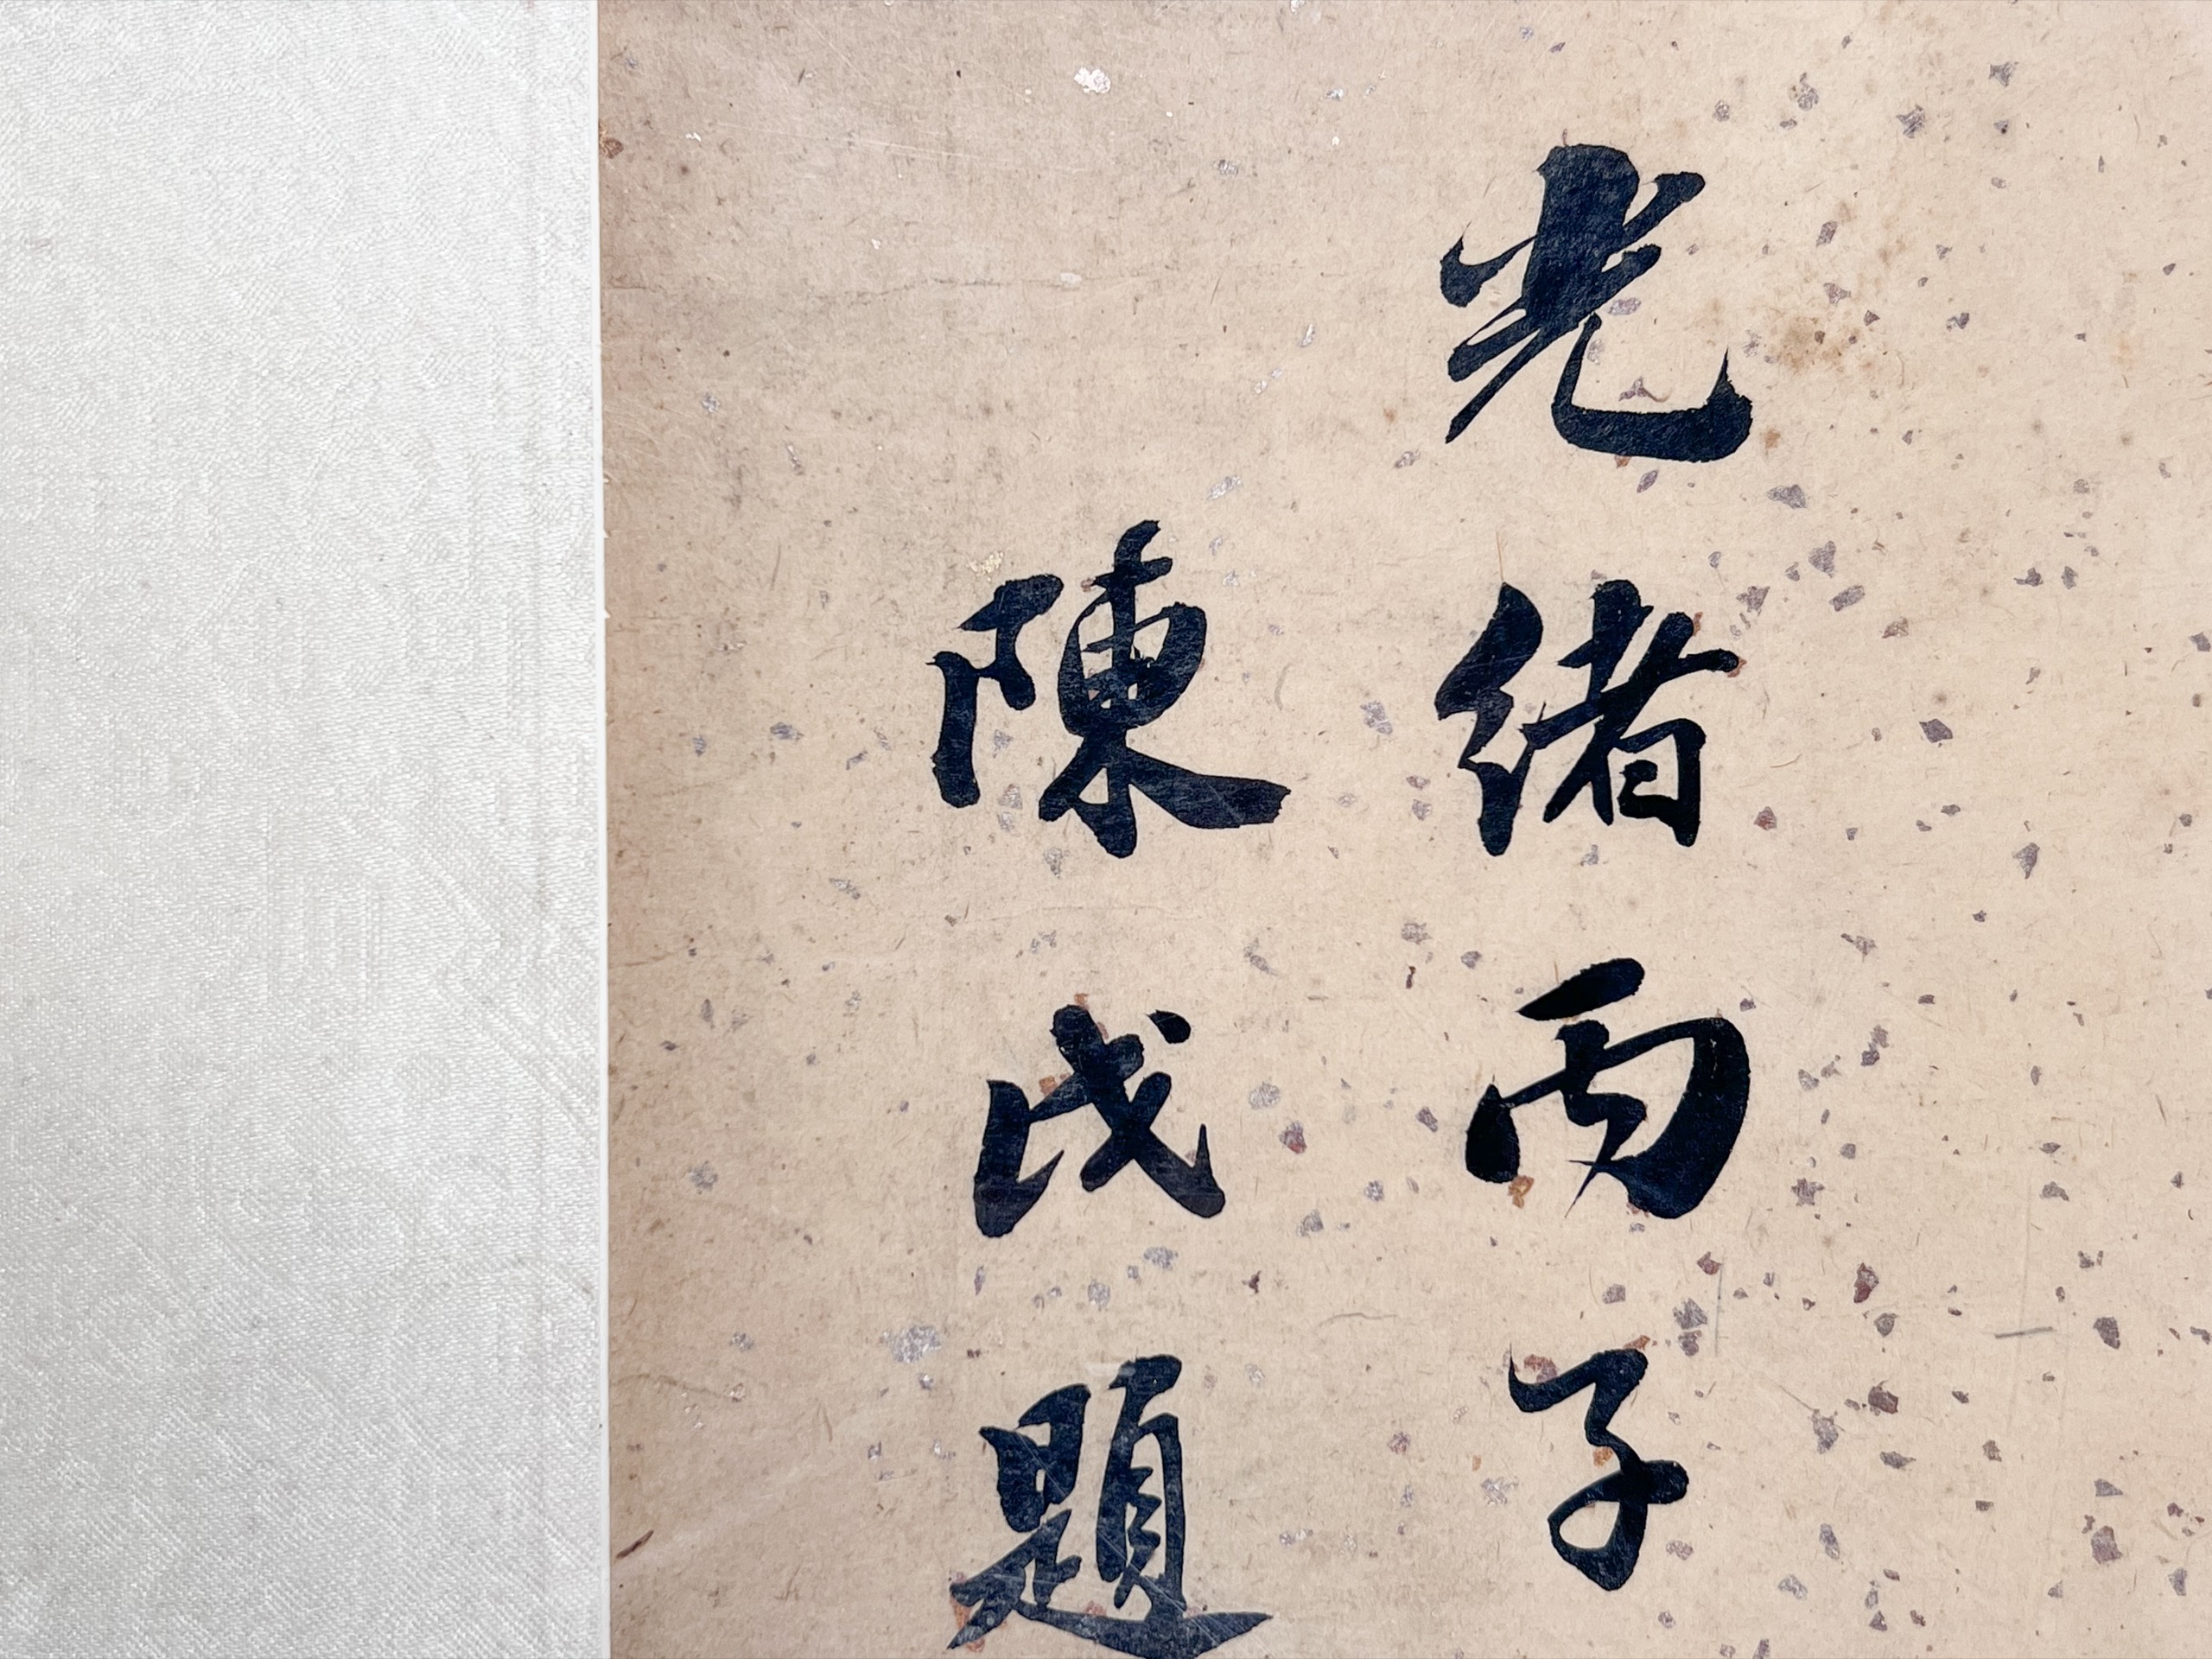 光緒丙子
陳戊題